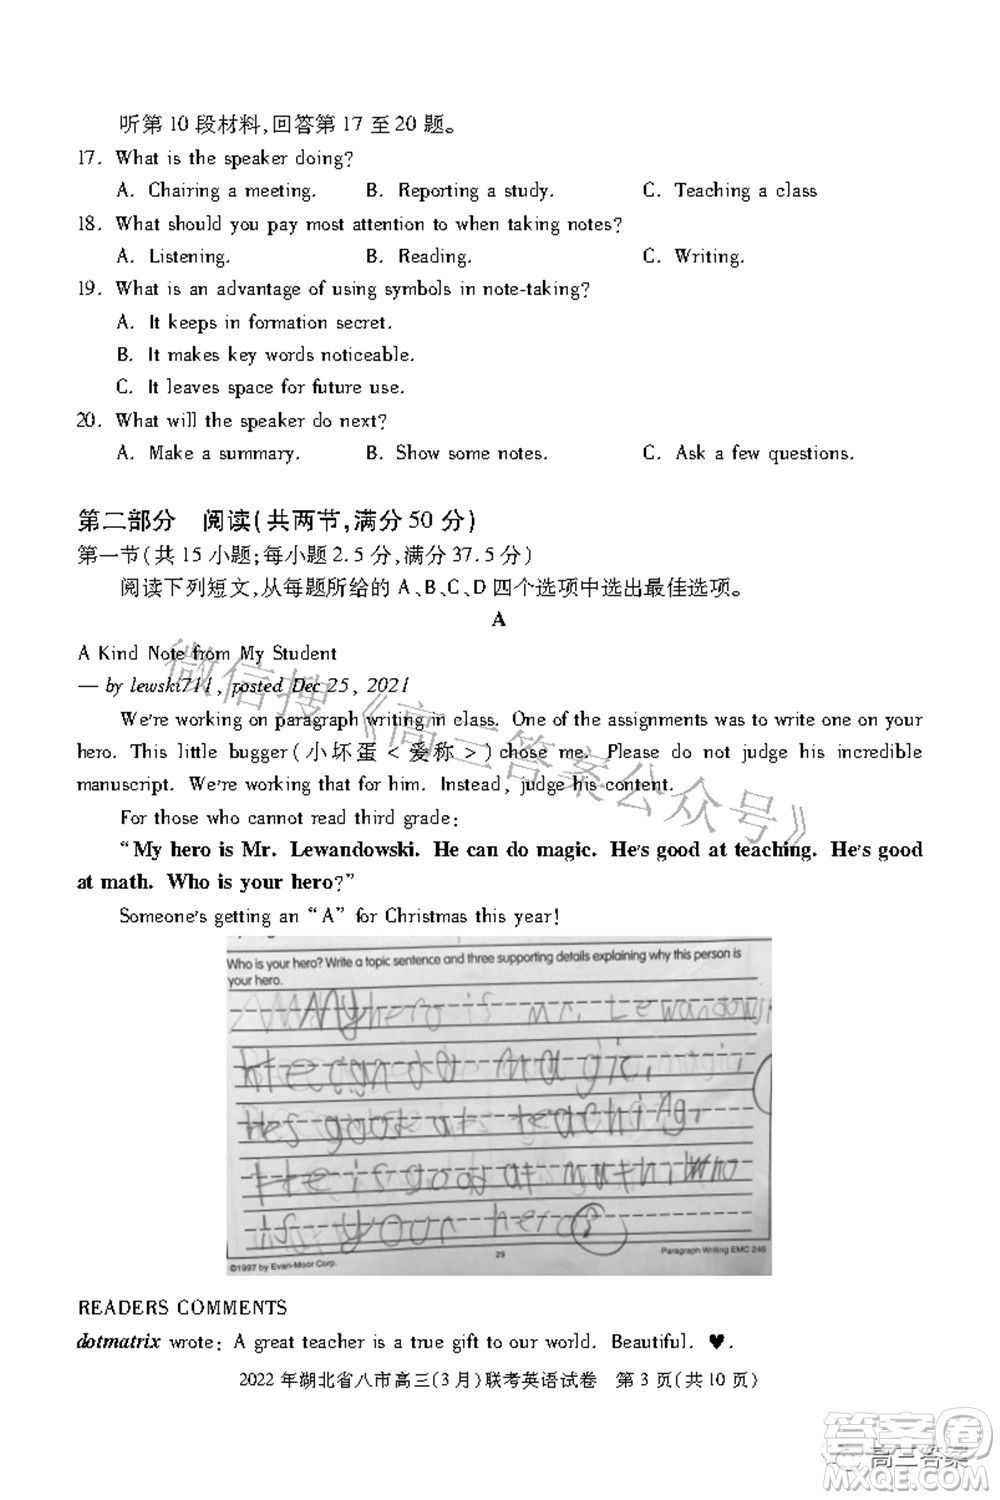 听第 10 段材料,回答第 17 至 20 题。
17. What is the speaker doing?
A. Chairing a meeting. B. Reporting a study. C. Teaching a class
18. What should you pay most attention to when taking notes?
A. Listening. B. Reading. C. Writing.
19. What is an advantage of using symbols in note-taking?
A. It keeps in formation secret.
B. It makes key words noticeable.
C. It leaves space for future use.
20. What will the speaker do next?
A. Make a summary. B. Show some notes. C. Ask a few questions.
第二部分 阅读(共两节,满分 50 分)
第一节(共 15 小题;每小题 2.5 分,满分 37.5 分)
阅读下列短文,从每题所给的 A、B、C、D 四个选项中选出最佳选项。
A
A Kind Note from My Student
— by lewski711, posted Dec 25, 2021
We're working on paragraph writing in class. One of the assignments was to write one on your
hero. This little bugger(小坏蛋<爱称>) chose me. Please do not judge his incredible
manuscript. We're working that for him. Instead, judge his content.
For those who cannot read third grade:
"My hero is Mr. Lewandowski. He can do magic. He's good at teaching. He's good
at math. Who is your hero?"
Someone's getting an "A" for Christmas this year!
Who is your hero? Write a topic sentence and three supporting details explaining why this person is
your hero.
My hero is mr. Lewandowsk
He can do magic.
Hes good at teaching.
He is good at math Who
is your hero?
29
©1997 by Evan-Moor Corp.
Paragraph Writing EMC 246
READERS COMMENTS
dotmatrix wrote: A great teacher is a true gift to our world. Beautiful. ♥.
2022 年湖北省八市高三(3 月)联考英语试卷 第 3 页(共 10 页)
微信搜《高三答案公众号》
答案圈
高三答案
MXQE.COM